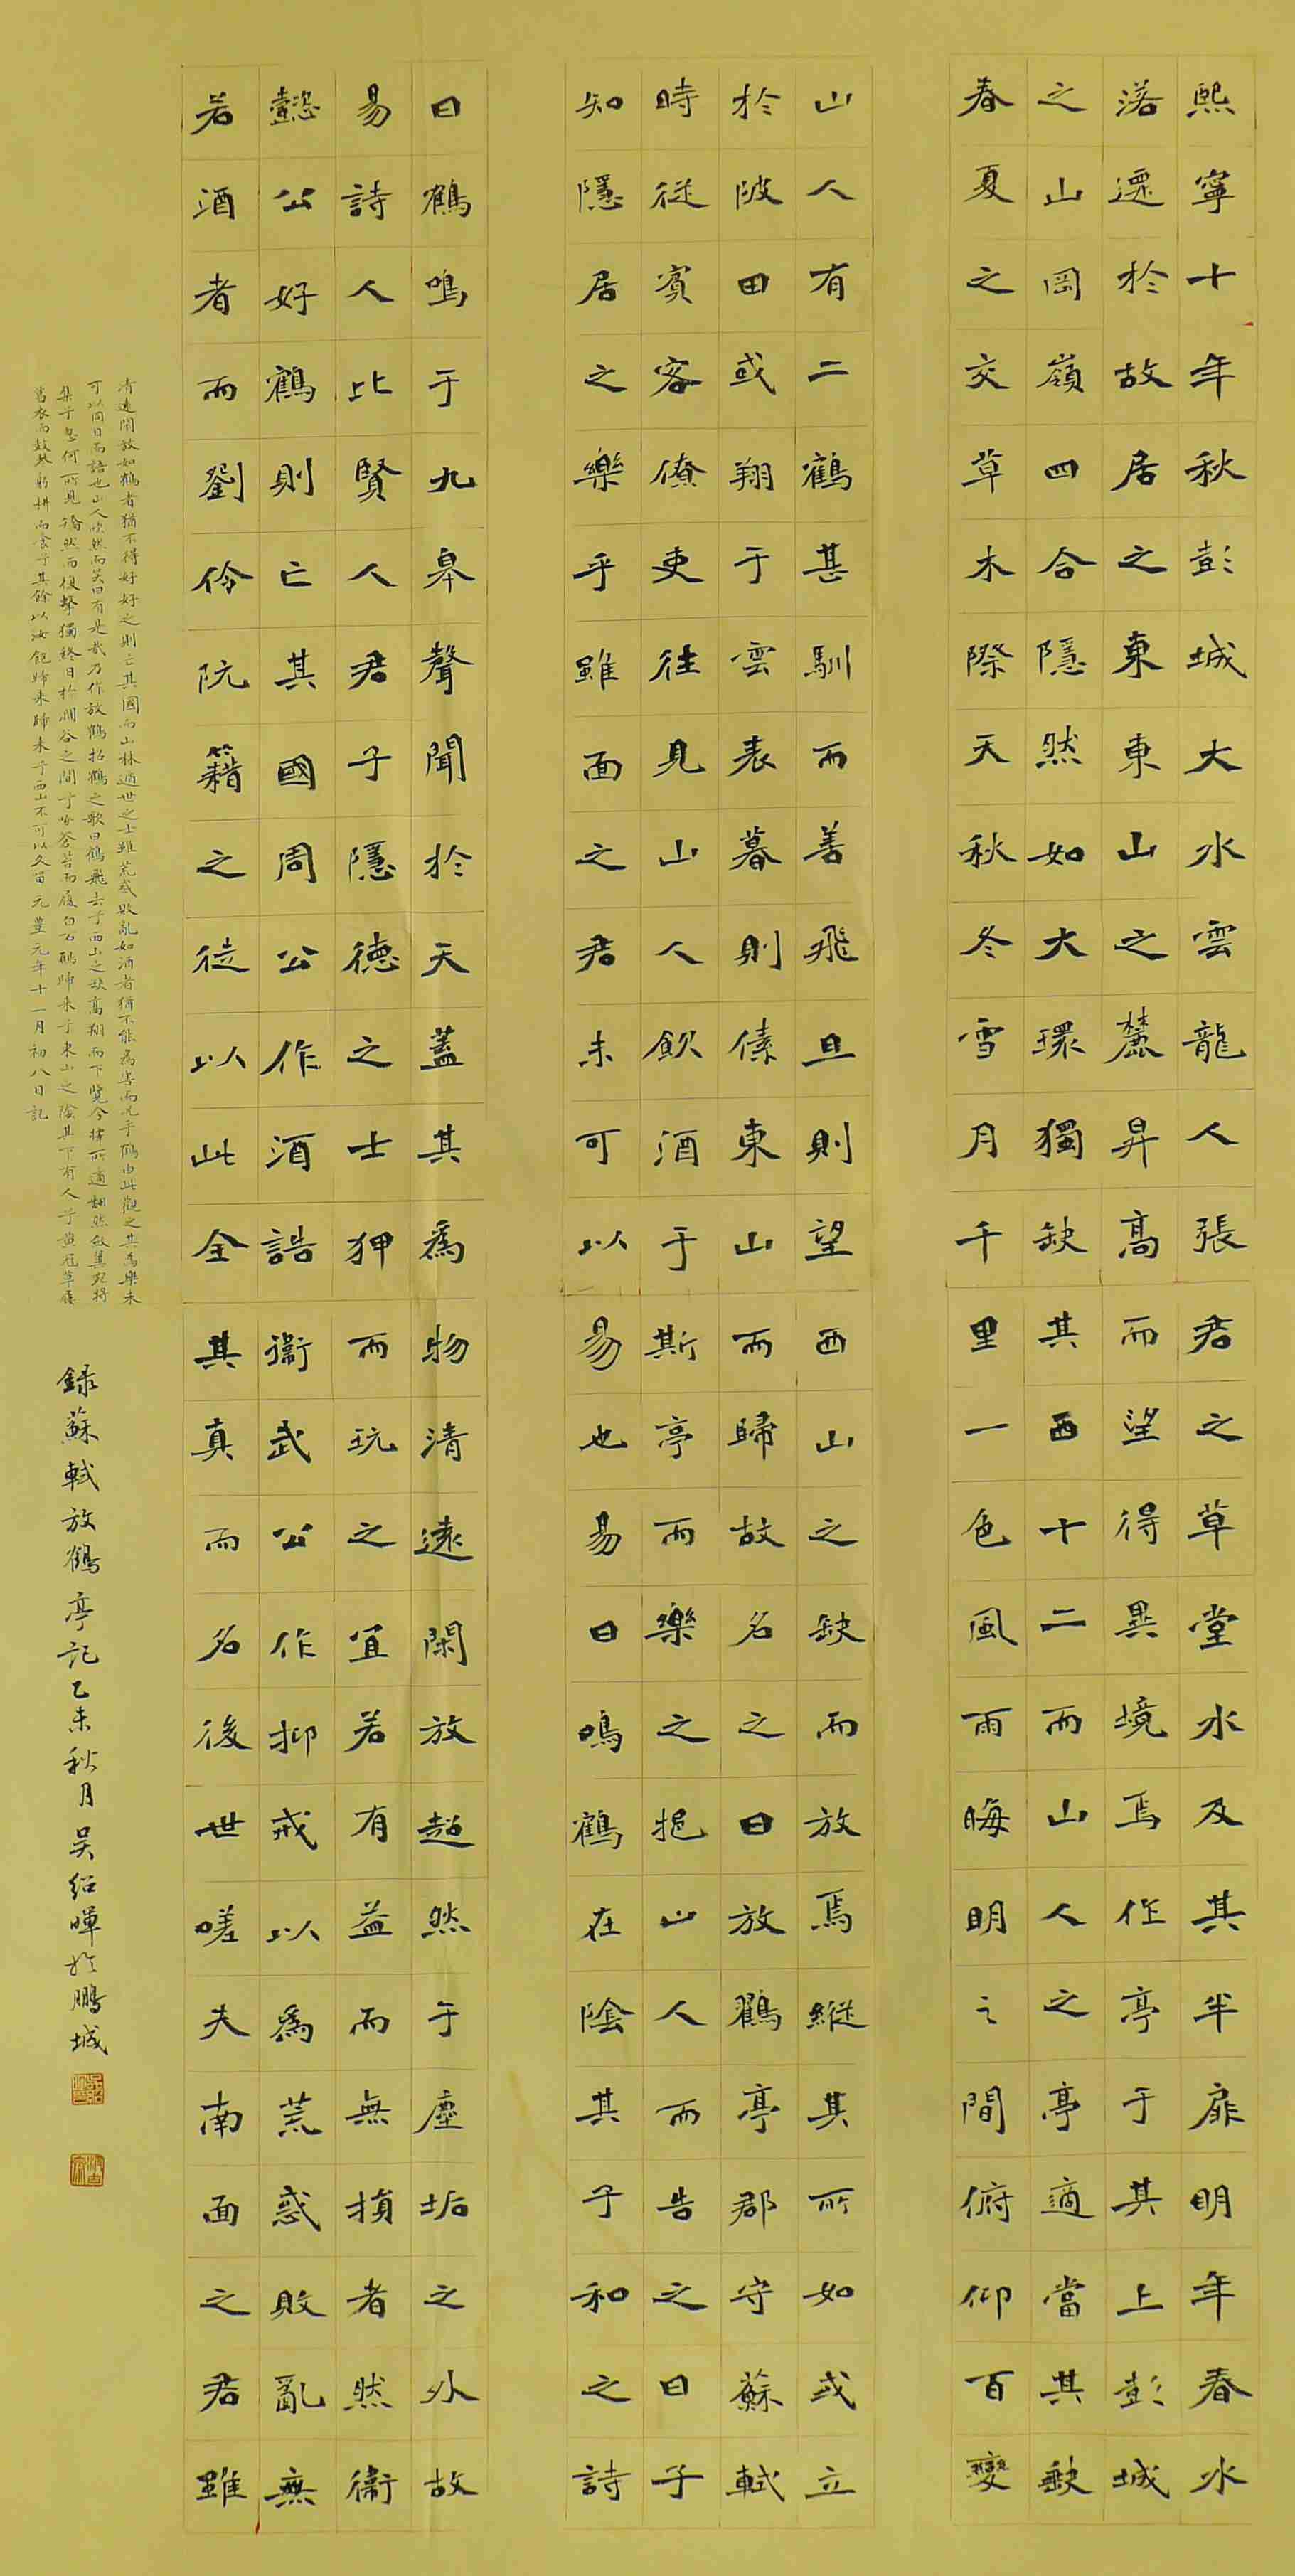 熙寧十年秋彭城大水雲龍人張君之草堂水及其半扉明年春水
落遷於故居之東東山之麓昇高而望得異境焉作亭于其上彭城
之山岡嶺四合隱然如大環獨缺其西十二而山人之亭適當其缺
春夏之交草木際天秋冬雪月千里一色風雨晦明之間俯仰百變
山人有二鶴甚馴而善飛旦則望西山之缺而放焉縱其所如或立
於陂田或翔于雲表暮則傃東山而歸故名之曰放鶴亭郡守蘇軾
時從賓客僚吏往見山人飲酒于斯亭而樂之挹山人而告之曰子
知隱居之樂乎雖面之君未可以易也易曰鳴鶴在陰其子和之詩
曰鶴鳴于九皋聲聞於天蓋其為物清遠閑放超然于塵垢之外故
易詩人比賢人君子隱德之士狎而玩之宜若有益而無損者然衛
懿公好鶴則亡其國周公作酒誥衛武公作抑戒以為荒惑敗亂無
若酒者而劉伶阮籍之徒以此全其真而名後世嗟夫南面之君雖
清遠閑放如鶴者猶不得好好之則亡其國而山林遁世之士雖荒惑敗亂如酒者猶不能為害而況乎鶴由此觀之其為樂未
可以同日而語也山人欣然而笑曰有是哉乃作放鶴招鶴之歌曰鶴飛去兮西山之缺高翔而下覽兮擇所適翻然斂翼宛將
集兮忽何所見矯然而復擊獨終日於澗谷之間兮啄蒼苔而履白石鶴歸來兮東山之陰其下有人兮黃冠草履
葛衣而鼓琴躬耕而食兮其餘以汝飽歸來歸來兮西山不可以久留元豐元年十一月初八日記
錄蘇軾放鶴亭記乙未秋月吳紹暉於鵬城